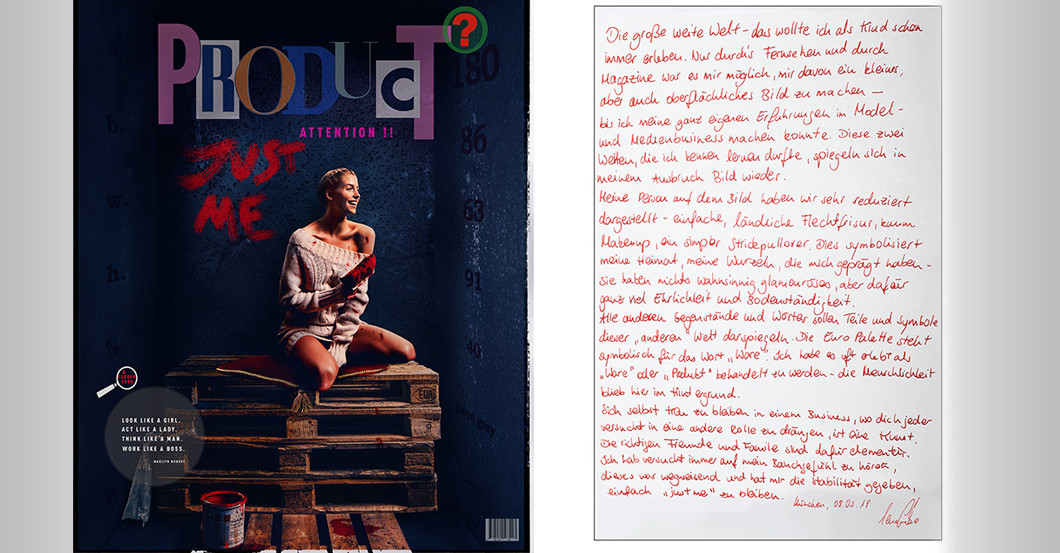 PRODUCT
?
ATTENTION !!
JUST
ME
h.
b.
w.
h.
180
86
63
91
40
LOOK LIKE A GIRL.
ACT LIKE A LADY.
THINK LIKE A MAN.
WORK LIKE A BOSS.
EUR
Die große weite Welt – das wollte ich als Kind schon
immer erleben. Nur durch's Fernsehen und durch
Magazine war es mir möglich, mir davon ein kleines,
aber auch oberflächliches Bild zu machen –
bis ich meine ganz eigenen Erfahrungen im Model-
und Medienbusiness machen konnte. Diese zwei
Welten, die ich kennen lernen durfte, spiegeln sich in
meinem Ausbruch Bild wieder.
Meine Person auf dem Bild haben wir sehr reduziert
dargestellt – einfache, ländliche Flechtfrisur, kaum
Makeup, ein simpler Strickpullover. Dies symbolisiert
meine Heimat, meine Wurzeln, die mich geprägt haben –
sie haben nichts wahnsinnig glamouröses, aber dafür
ganz viel Ehrlichkeit und Bodenständigkeit.
Alle anderen Gegenstände und Wörter sollen Teile und Symbole
dieser „anderen" Welt darspiegeln. Die Euro Palette steht
symbolisch für das Wort „Ware". Ich habe es oft erlebt als
„Ware" oder „Produkt" behandelt zu werden – die Menschlichkeit
blieb hier im Hintergrund.
Sich selbst treu zu bleiben in einem Business, wo dich jeder
versucht in eine andere Rolle zu drängen, ist eine Kunst.
Die richtigen Freunde und Familie sind dafür elementar.
Ich hab versucht immer auf mein Bauchgefühl zu hören,
dieses war wegweisend und hat mir die Stabilität gegeben,
einfach „just me" zu bleiben.
München, 08.03.18